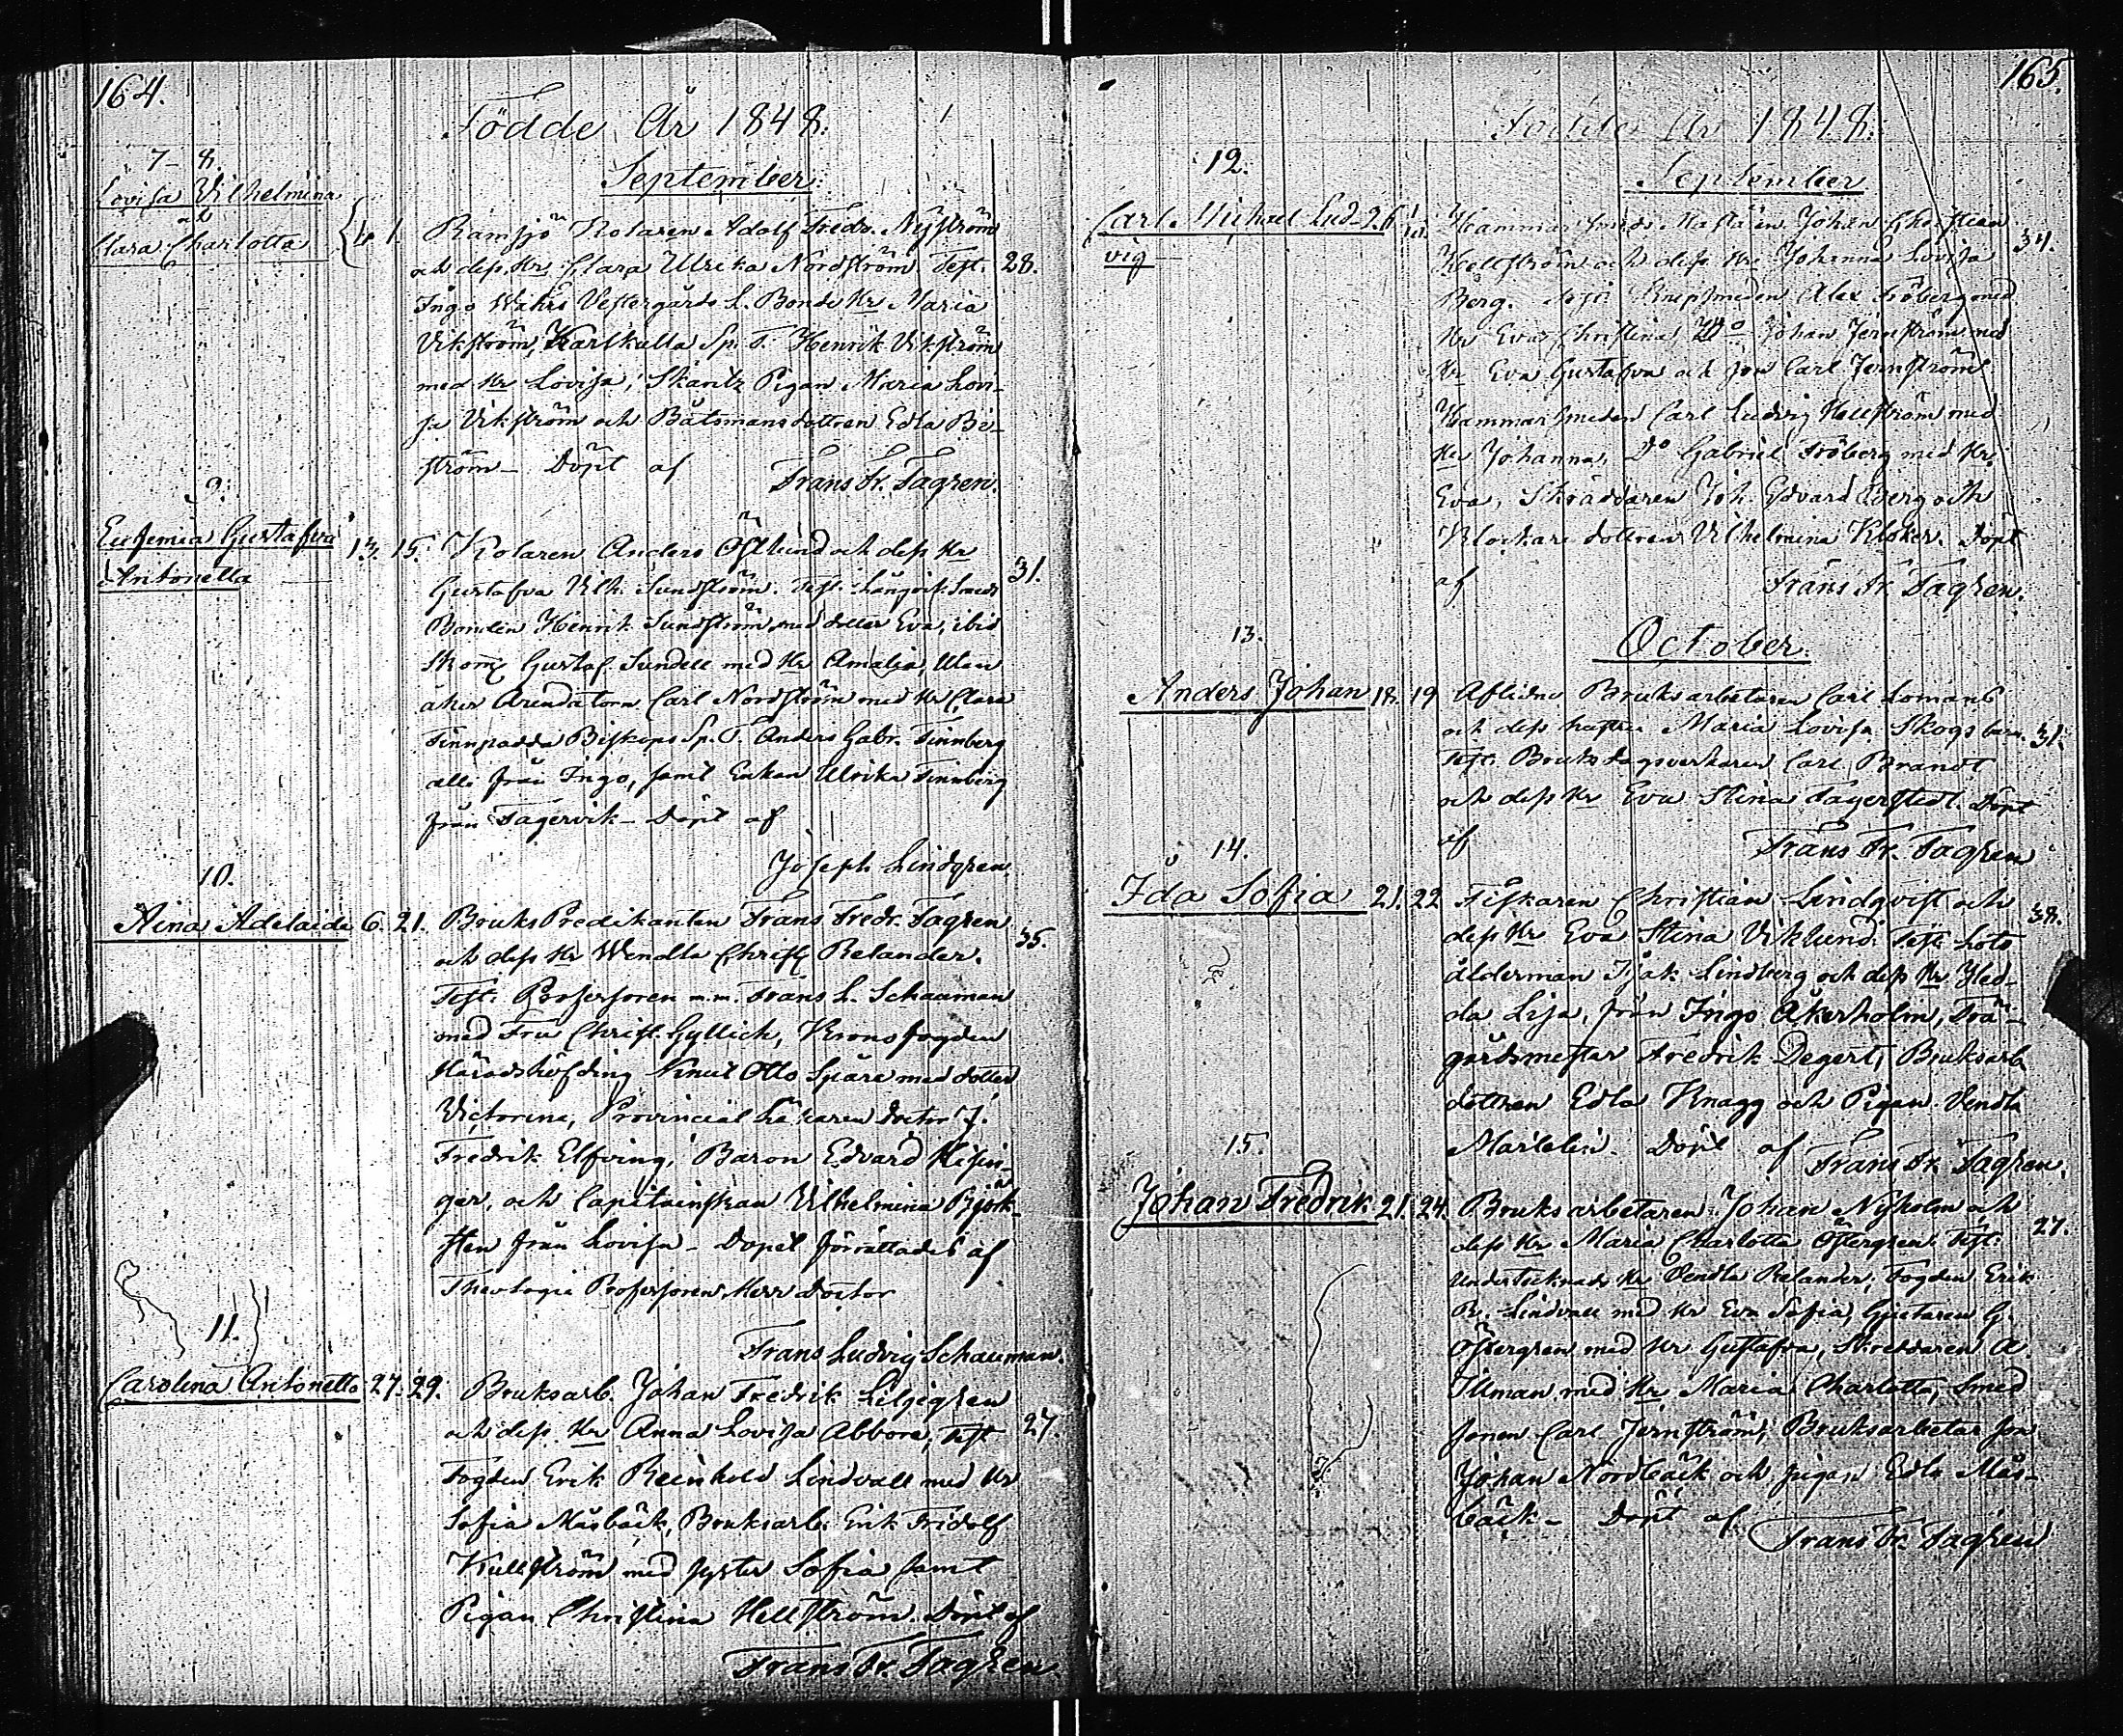 164.
Födde År 1848.
September.
7-8.
Lovisa Vilhelmina
och
Clara Charlotta
1.
Ramsjö Kolaren Adolf Fredr. Nyström
och dess Hr Clara Ulrica Nordström. Test. 28.
Ingo Westergårds L. Bonde Hr Maria
Vikström, Karlkulla Sp. T. Henrik Vikström
med Hr Lovisa, Skantz Pigan Maria Lovi-
sa Vikström och Båtsmansdottren Edla Bi-
ström - Döpt af Frans Fr. Tagren.
9.
Eufemia Gustafva
Antonetta
13. 15.
Kolaren Anders Östlund och dess Hr 31.
Gustafva Vilh. Sundström. Test. Smeds
Bonden Henrik Sundström med dotter Eva, ibid
Gustaf Sundell med Hr Amalia,
åker Arendatorn Carl Nordström med Hr Clara
Finnpadda Biskops Sp. T. Anders Gabr. Finnberg
alla från Ingo, samt Enkan Ulrika Finnberg
från Fagervik - Döpt af
Joseph Lindgren
10.
Aina Adelaide 6. 21.
Bruks Predikanten Frans Fredr. Tagren 35.
och dess Hr Wendla Christ. Relander.
Test. Professoren m.m. Frans L. Schauman
med Fru Christ. Gyllich, Kronofogden
Häradshöfding Knut Otto Spåre med dotter
Victorina, Provincial Läkaren Doctor J.
Fredrik Elfving, Baron Edvard Hisin-
ger, och Capitainskan Vilhelmina Björk-
sten från Lovisa - Dopet förrättades af
Theologie Professoren Herr Doctor
Frans Ludvig Schauman.
11.
Carolina Antonetta 27. 29.
Bruksarb. Johan Fredrik Liljegren
och dess Hr Anna Lovisa Abbora, Test 27.
Fogden Erik Reinhold Lindvall med Hr
Sofia Måsbäck, Bruksarb. Erik Fridolf
Kullström med syster Sofia samt
Pigan Christina Hellström. Döpt af
Frans Fr. Tagren
165.
Födde År 1848.
September
12.
Carl Michael Lud-
vig
26
Hammarsmeds Mästaren Johan Christian 34.
Hellström och dess Hr Johanna Lovisa
Berg. Test. Alex Fröberg med
Hr Eva Christina, Do Johan Jernström med
Hr Eva Gustafva och son Carl Jernström
Hammarsmeden Carl Ludvig Hellström med
Hr Johanna, Do Gabriel Fröberg med Hr
Eva, Skräddaren Joh. Edvard och
Klockare dottren Vilhelmina Klöker. Döpt
af Frans Fr. Tagren.
October.
13.
Anders Johan 18. 19
Aflidne Bruksarbetaren Carl Lomans
och dess hustru Maria Lovisa Skogs barn. 31.
Test. Bruks dagsverkaren Carl Brandt
och dess Hr Eva Stina Fagerstedt. Döpt
af Frans Fr. Tagren
14.
Ida Sofia 21. 22
Fiskaren Christian Lindqvist och 38.
dess Hr Eva Stina Viklund. Test Lots
ålderman Isak Lindberg och dess Hr Hed-
da Lisa, från Ingo Åkerholm, Trä-
gårdsmestar Fredrik Degert, Bruksarb.
dottren Edla Knagg och Pigan Vendla
Martelin. Döpt af Frans Fr. Tagren.
15.
Johan Fredrik 21. 24.
Bruksarbetaren Johan Nyholm och
dess Hr Maria Charlotta Östergren. Test. 27.
Undertecknads Hr Vendla Relander, Fogden Erik
R. Lindvall med Hr Eva Sofia, Gjutaren G.
Östergren med Hr Gustafva, Skreddaren A
Illman med Hr Maria Charlotta, Smed
sonen Carl Jernström, Bruksarbetar son
Johan Nordbäck och pigan Edla Mås-
bäck - Döpt af Frans Fr. Tagren